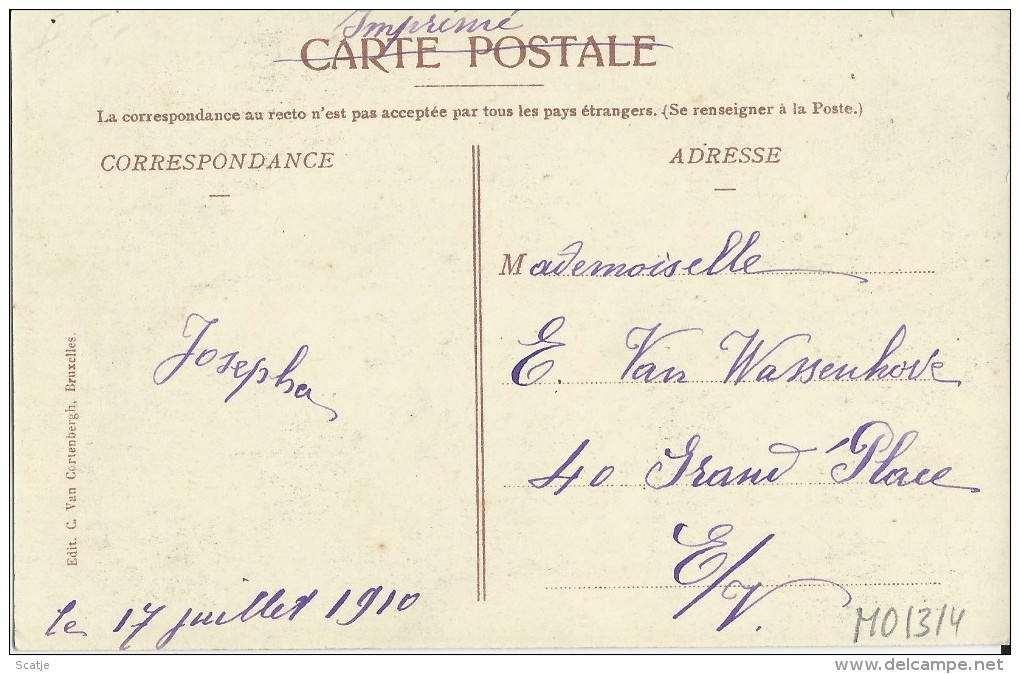 Imprimé
CARTE POSTALE
La correspondance au recto n'est pas acceptée par tous les pays étrangers. (Se renseigner à la Poste.)
CORRESPONDANCE
ADRESSE
Mademoiselle
E. Van Wassenhove
40 Grand Place
E/V.
Josepha
le 17 juillet 1910
Edit. C. Van Cortenbergh, Bruxelles.
MO/3/4
Scatje
www.delcampe.net